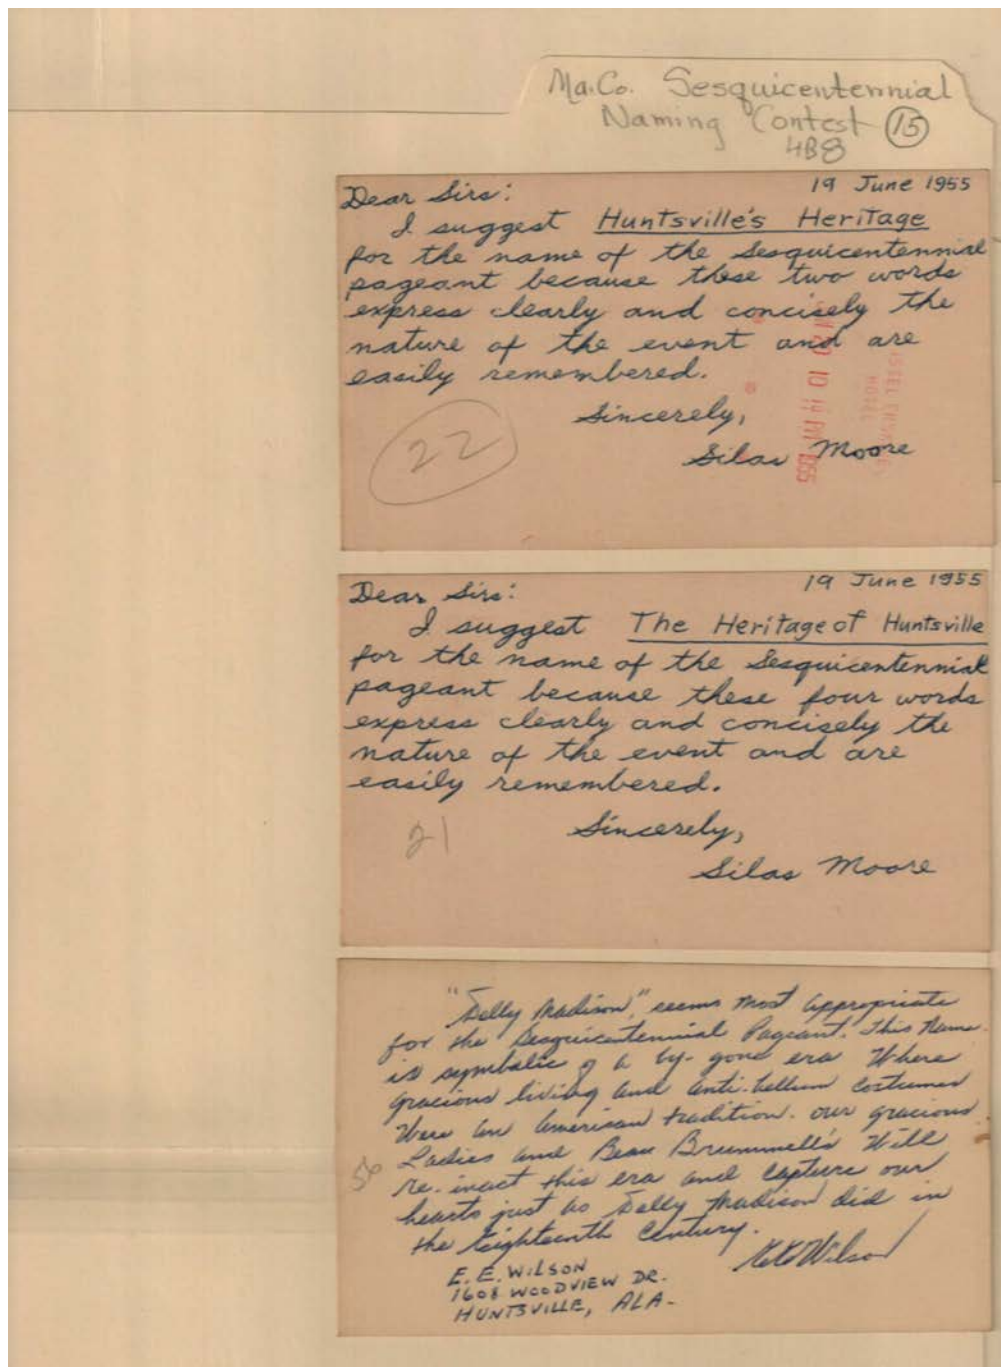 Ma.Co. Sesquicentennial
Naming Contest 15
4B8
19 June 1955
Dear Sirs:
I suggest Huntsville's Heritage
for the name of the Sesquicentennial
pageant because these two words
express clearly and concisely the
nature of the event and are
easily remembered.
Sincerely,
Silas Moore
22
19 June 1955
Dear Sirs:
I suggest The Heritage of Huntsville
for the name of the Sesquicentennial
pageant because these four words
express clearly and concisely the
nature of the event and are
easily remembered.
Sincerely,
Silas Moore
21
"Dolly Madison", seems most appropriate
for the Sesquicentennial Pageant. This Name
is symbolic of a by-gone era Where
gracious living and anti-bellum costumes
Were an American tradition. our gracious
Ladies and Beau Brummell's Will
re-inact this era and capture our
hearts just as Dolly Madison did in
the Eighteenth Century.
E. E. WILSON
1608 WOODVIEW DR.
HUNTSVILLE, ALA-